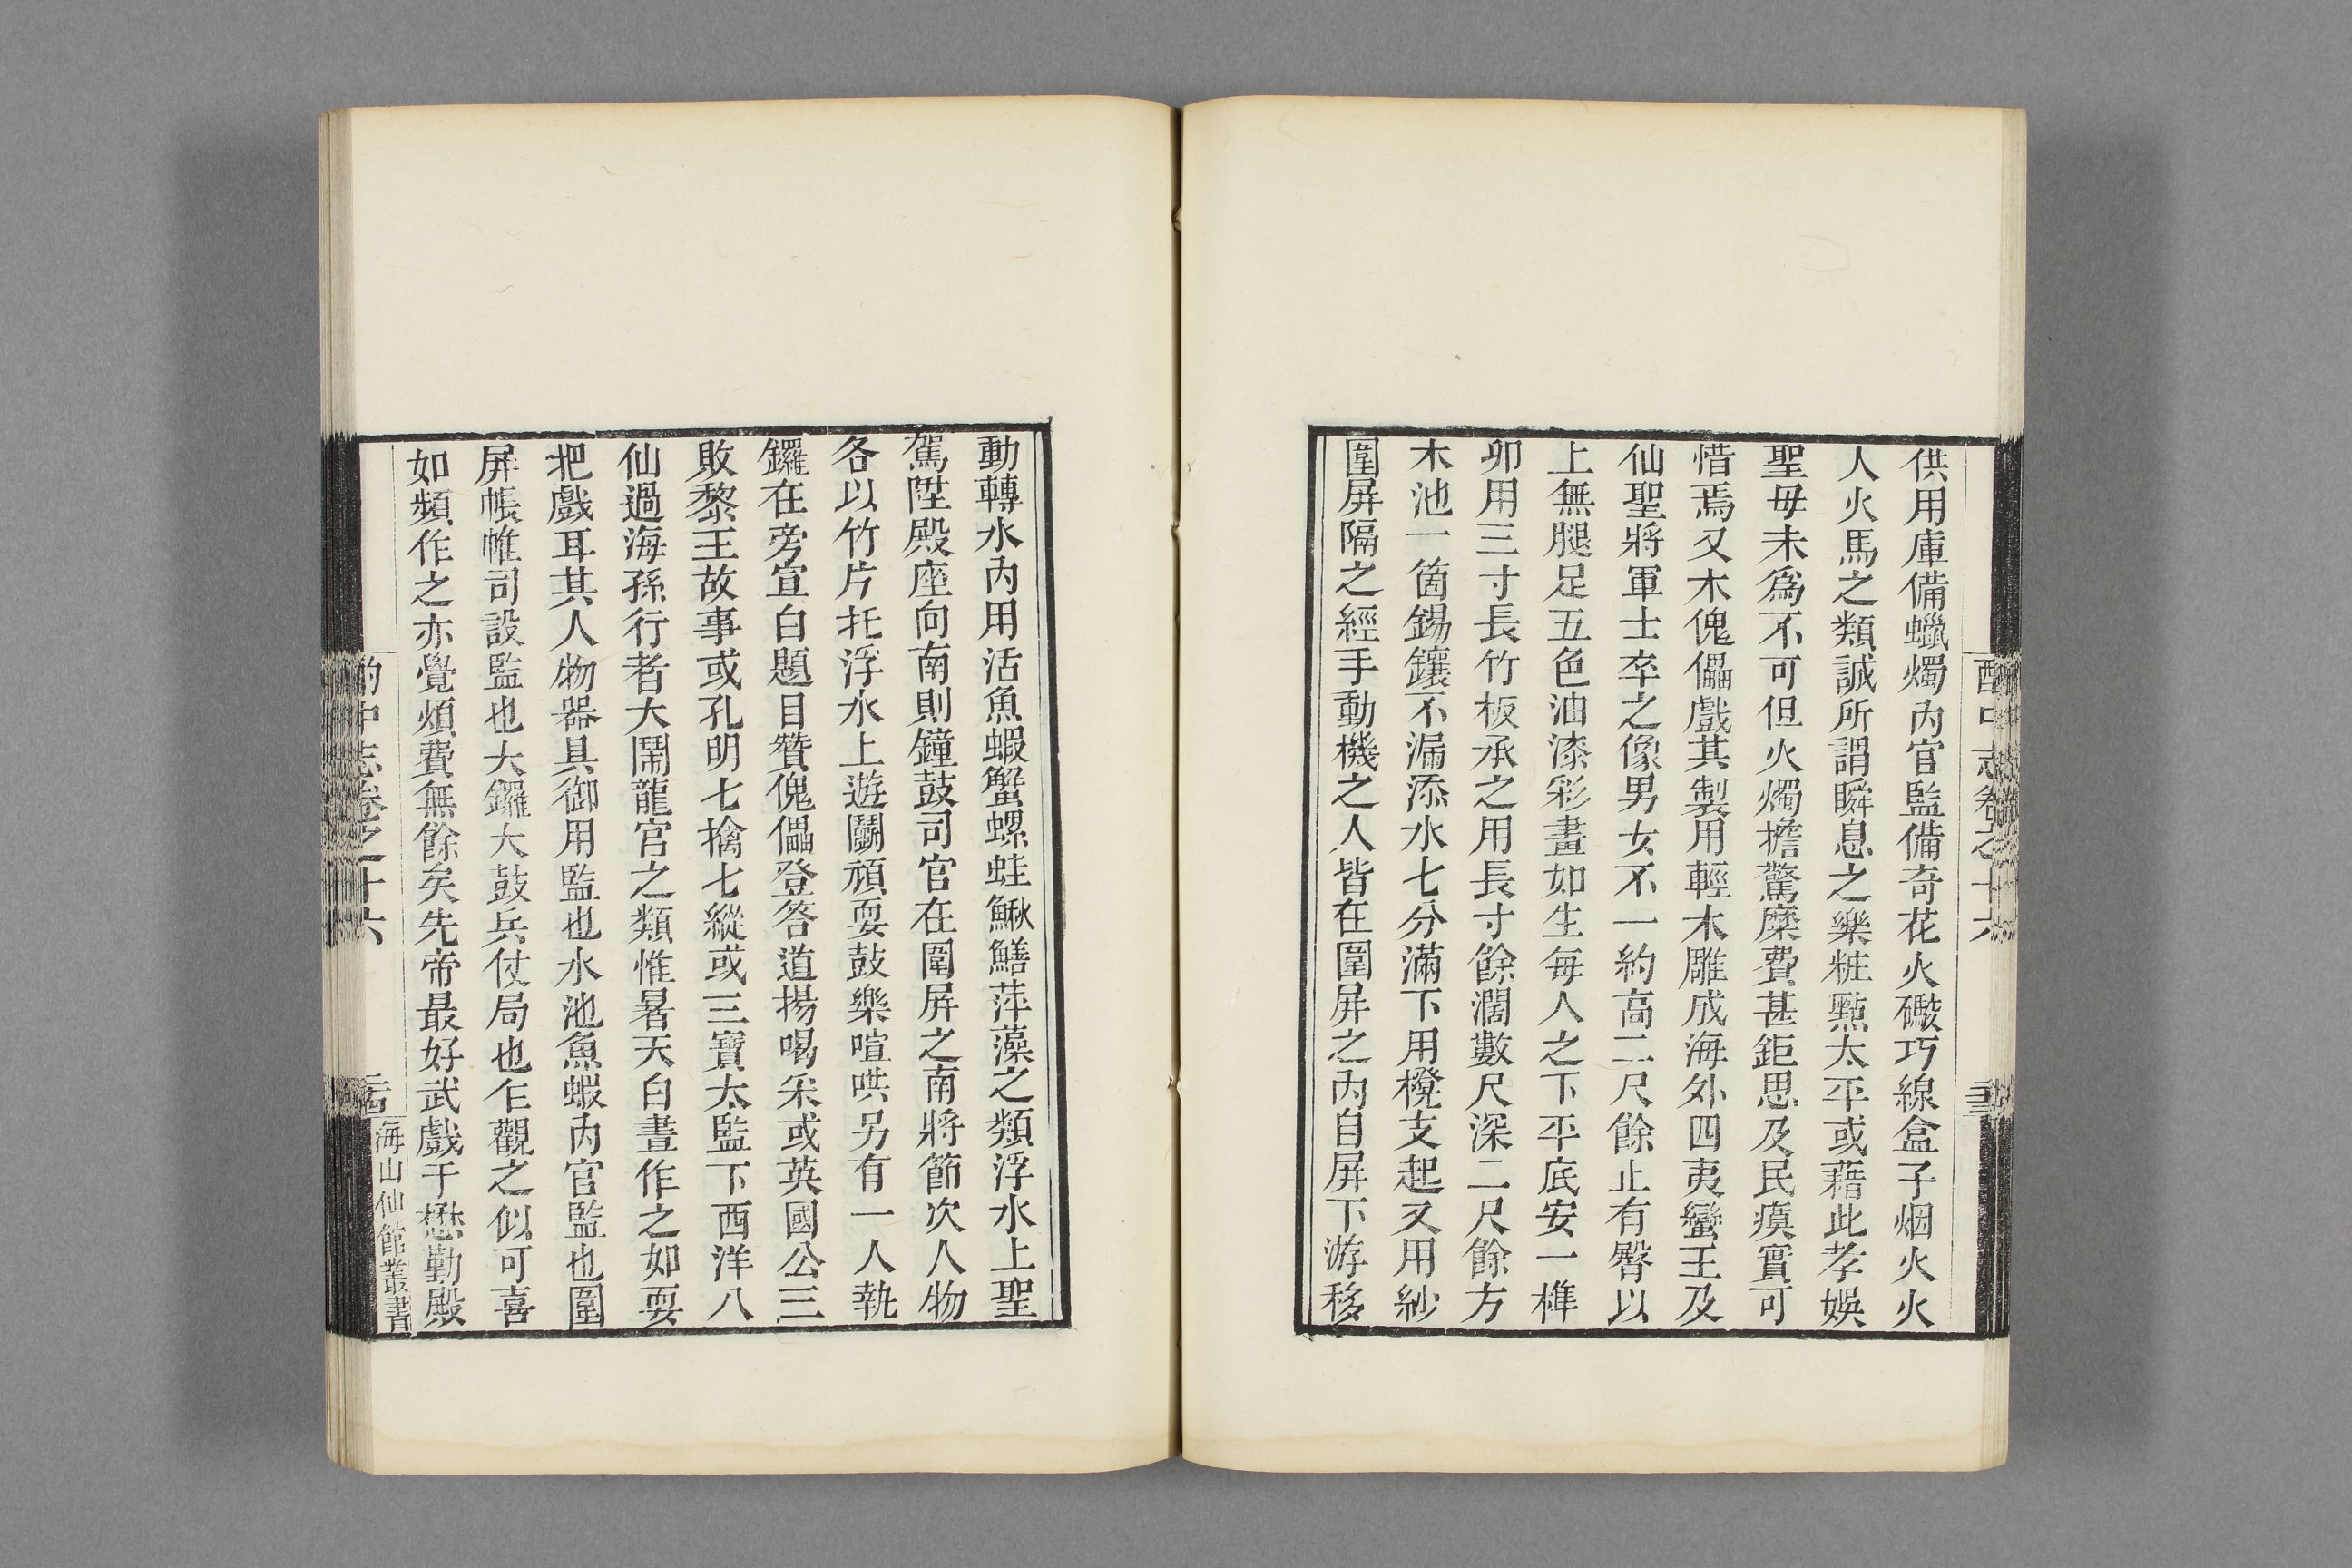 酌中志卷之十六
供用庫備蠟燭内官監備奇花火礮巧線盒子烟火火
人火馬之類誠所謂瞬息之樂粧㸃太平或藉此孝娛
聖母未爲不可但火燭擔驚糜費甚鉅思及民瘼實可
惜焉又木傀儡戲其製用輕木雕成海外四夷蠻王及
仙聖將軍士卒之像男女不一約高二尺餘止有臀以
上無腿足五色油漆彩畫如生每人之下平底安一榫
卯用三寸長竹板承之用長寸餘濶數尺深二尺餘方
木池一箇錫鑲不漏添水七分滿下用櫈支起又用紗
圍屏隔之經手動機之人皆在圍屏之内自屏下游移
動轉水内用活魚蝦蟹螺蛙鰍鱔萍藻之類浮水上聖
駕陞殿座向南則鐘鼓司官在圍屏之南將節次人物
各以竹片托浮水上遊鬭頑耍鼓樂喧哄另有一人執
鑼在旁宣白題目贊傀儡登答道揚喝采或英國公三
敗黎王故事或孔明七擒七縱或三寶太監下西洋八
仙過海孫行者大鬧龍宮之類惟暑天白晝作之如耍
把戲耳其人物器具御用監也水池魚蝦内官監也圍
屏帳帷司設監也大鑼大鼓兵仗局也乍觀之似可喜
如頻作之亦覺煩費無餘矣先帝最好武戲于懋勤殿
酌中志卷之十六
海山仙館叢書